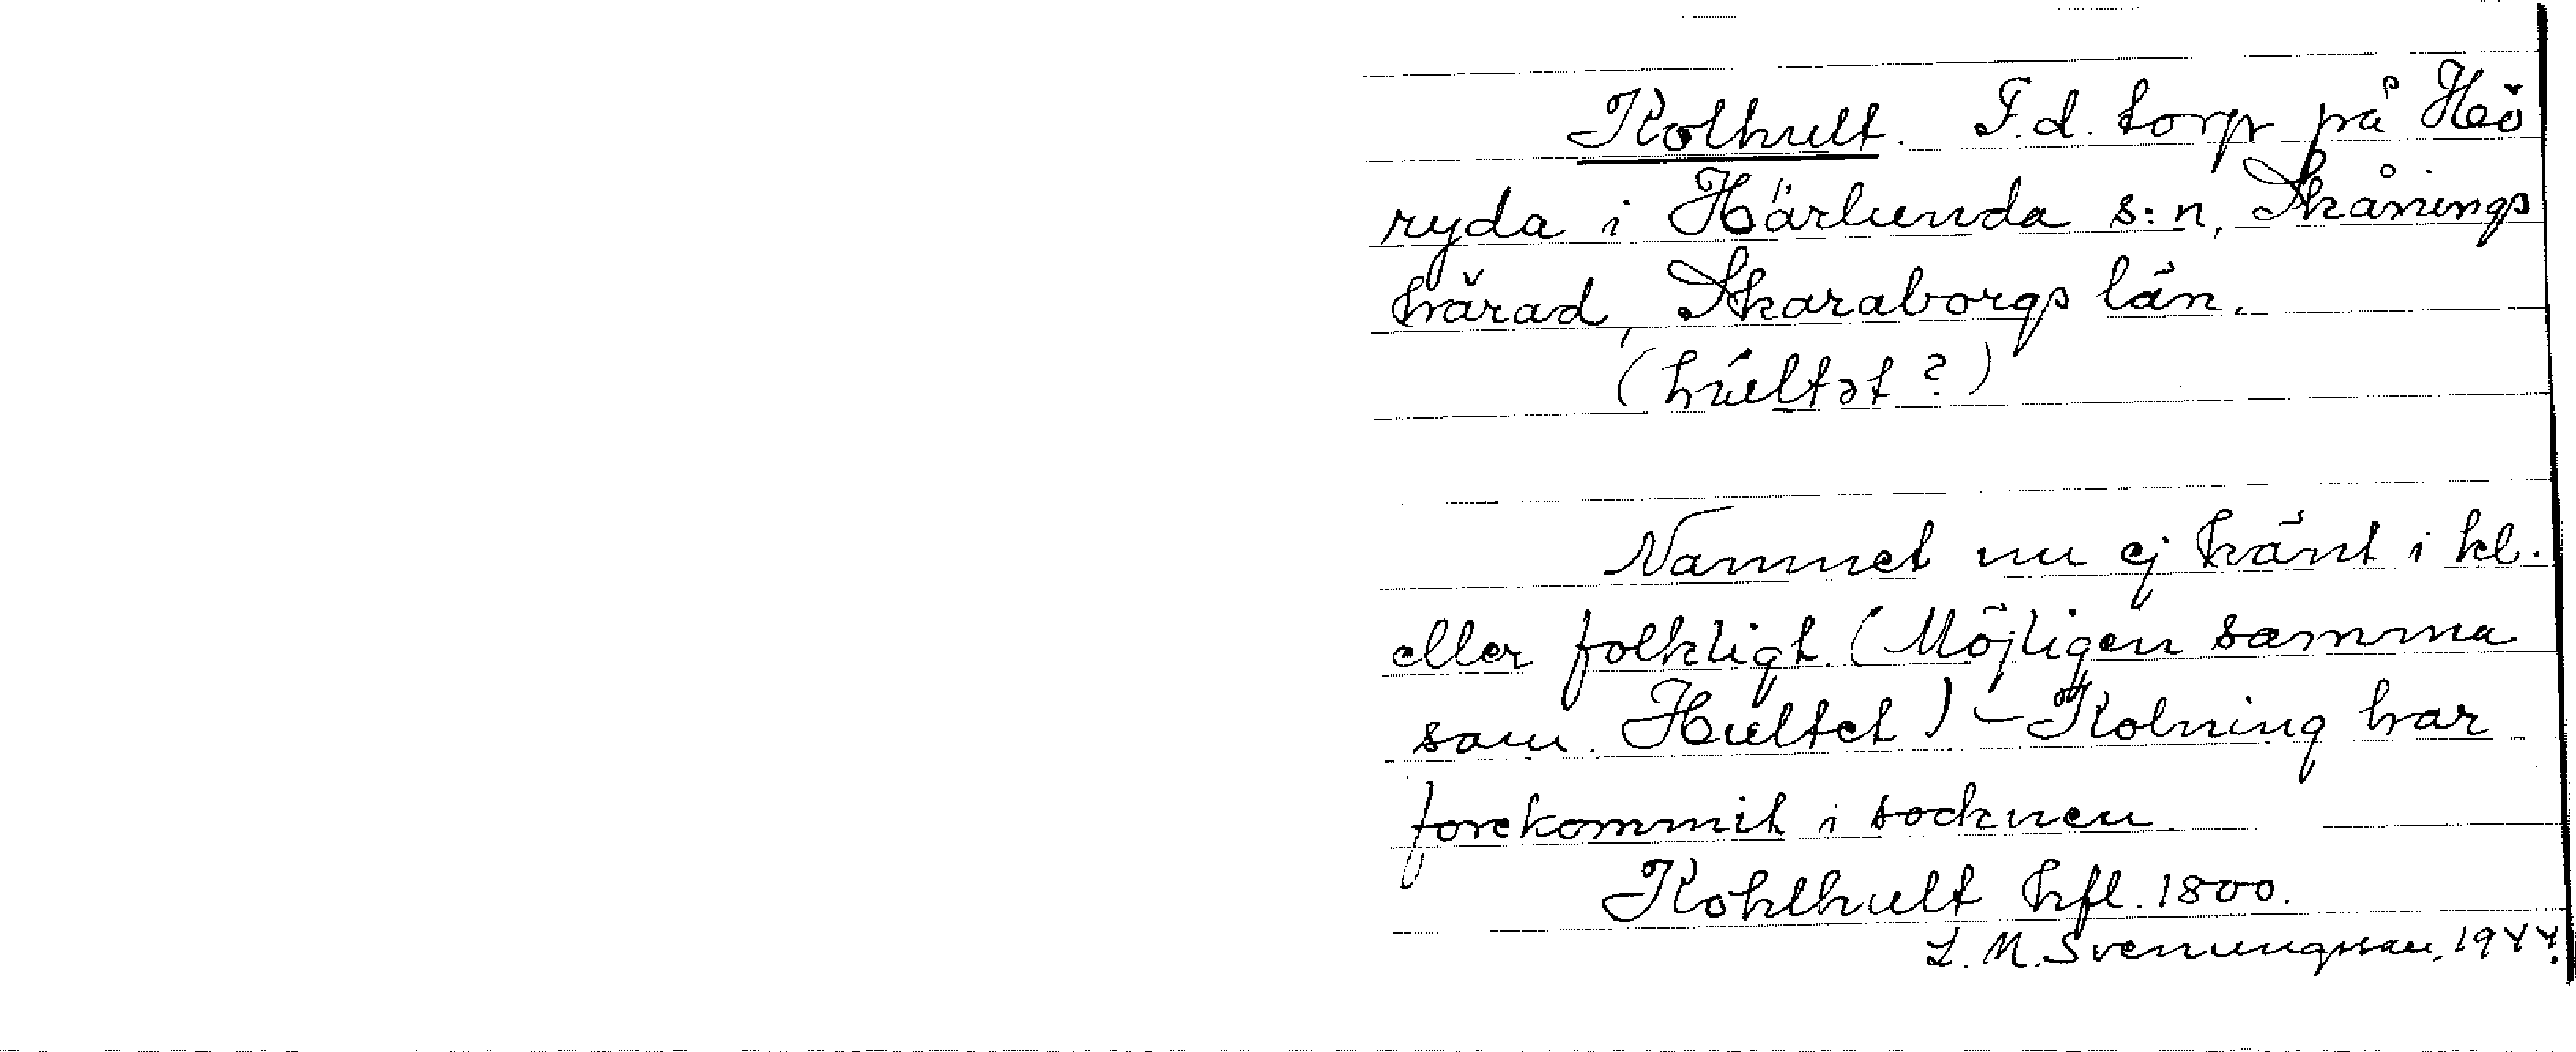 Kolhult. F.d. torp på Hö
ryda i Härlunda s:n, Skånings
härad, Skaraborgs län.
(húltət?)
Namnet nu ej känt i kl.
eller folkligt. (Möjligen samma
som Hultet) – Kolning har
förekommit i socknen.
Kohlhult hfl. 1800.
L. M. Svenungsson. 1944.